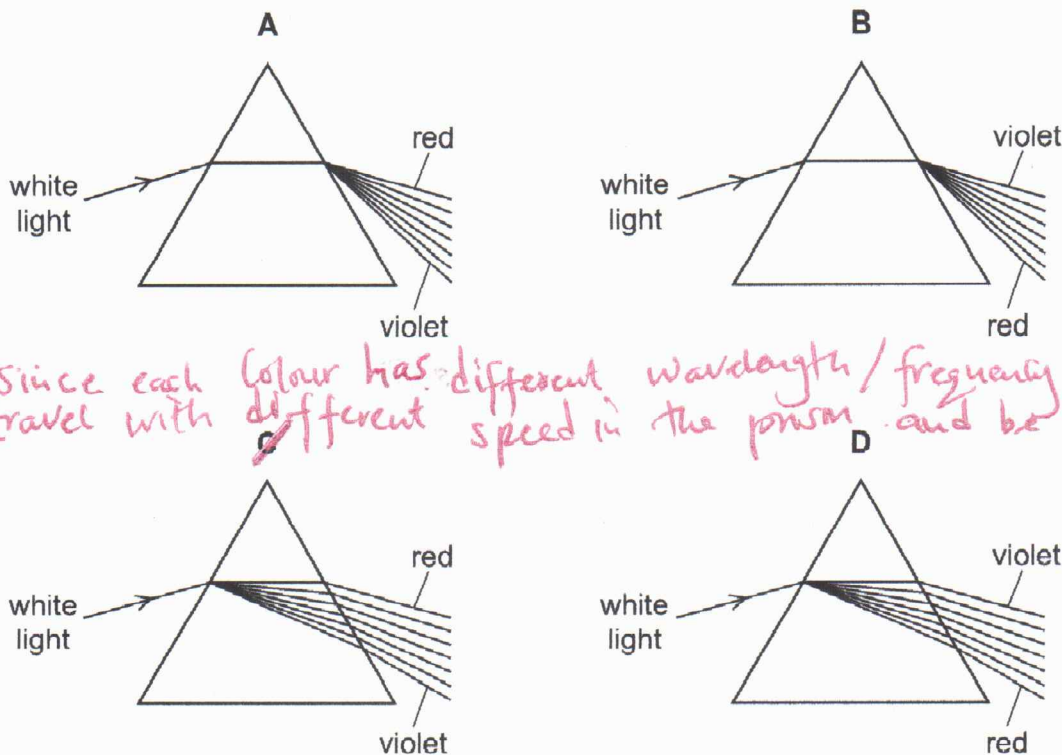 A
B
red
white
light
violet
violet
white
light
red
since each Colour has different wavelength/frequency
travel with different speed in the prism and be
C
D
red
white
light
violet
violet
white
light
red